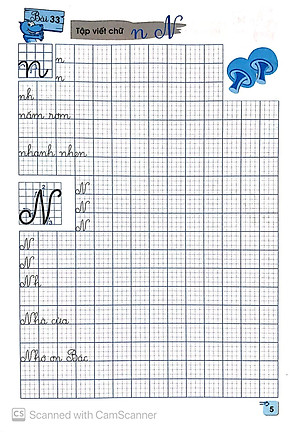 Bài 33
Tập viết chữ n N
n
n
n
nh
nấm rơm
nhanh nhẹn
N
N
N
N
N
N
Nh
Nhà cửa
Nhớ ơn Bác
5
CS Scanned with CamScanner